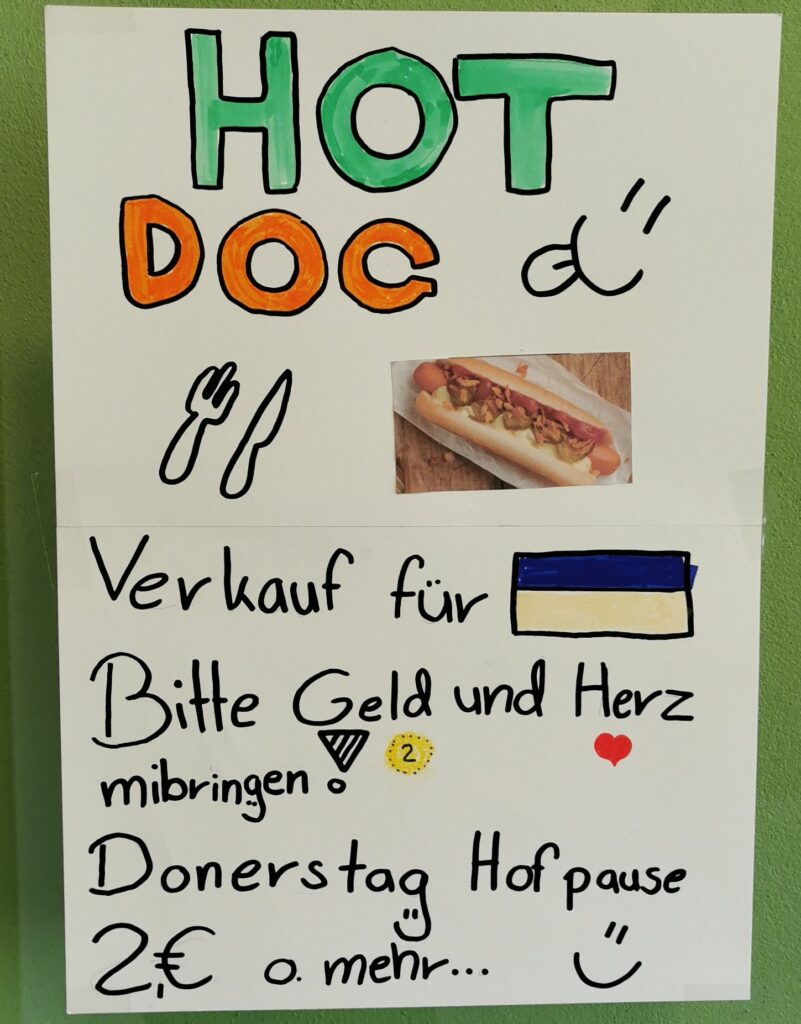 HOT
DOG
Verkauf für
Bitte Geld und Herz
2
mibringen!
Donerstag Hofpause
2,€ o. mehr...